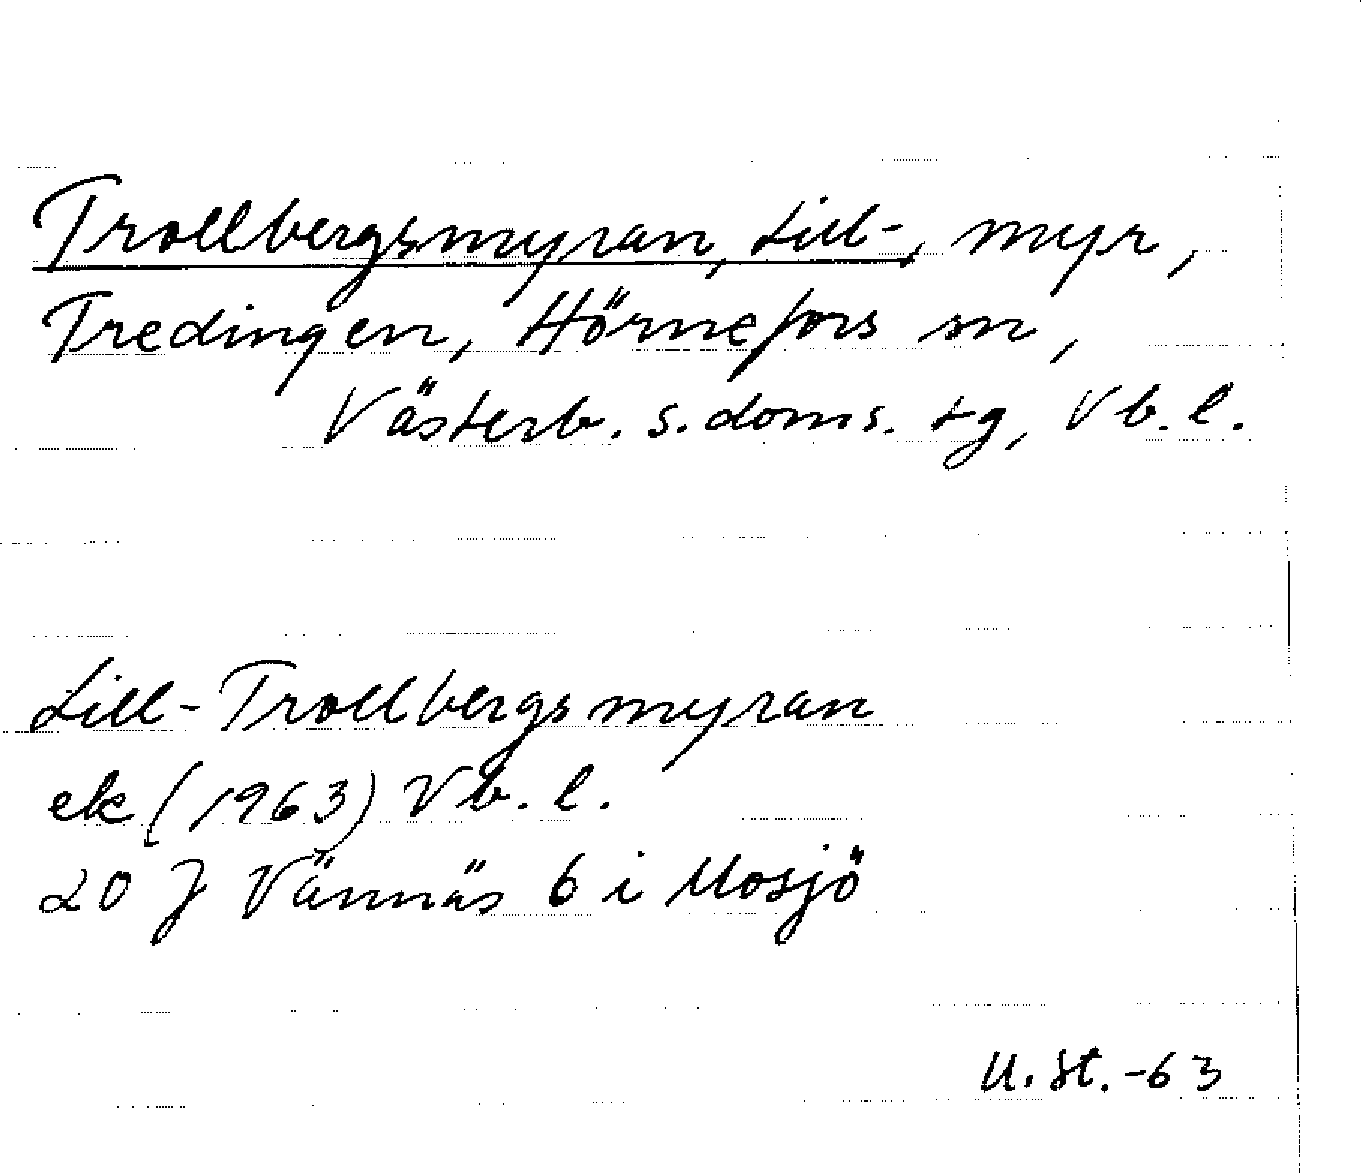 Trollbergsmyran, Lill-, myr,
Tredingen, Hörnefors sn,
Västerb. s. doms. tg, Vb. l.
Lill-Trollbergsmyran
ek (1963) Vb. l.
20 J Vännäs 6 i Mosjö
U. St. -63